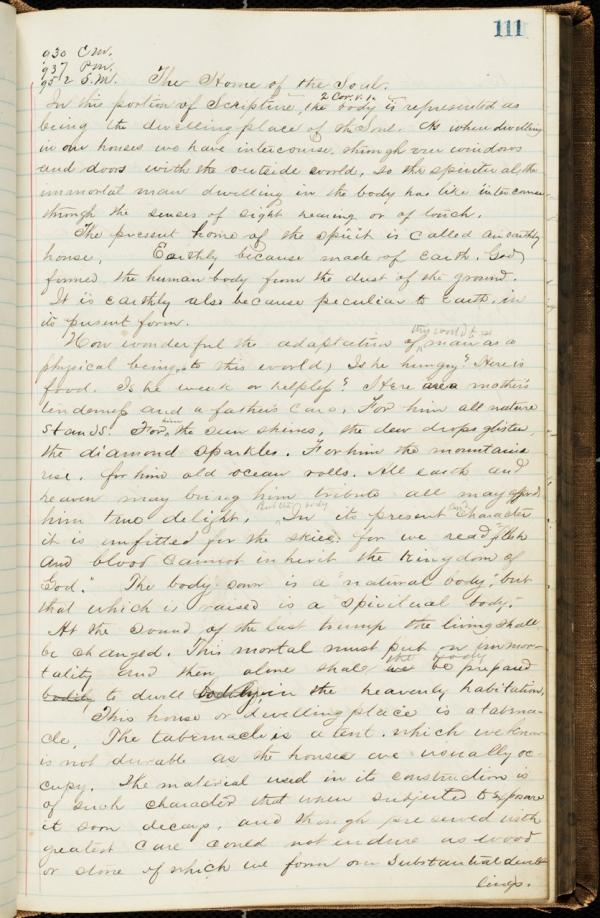 111
930 C.M.
937 P.M.
952 S.M.
The Home of the Soul.
2 Cor. v. 1.
In this portion of Scripture, the body is represented as
being the dwelling place of the Soul. As when dwelling
in our houses we have intercourse, through our windows
and doors with the outside world, so the spiritual, the
immortal man dwelling in the body has like intercourse
through the senses of sight hearing or of touch.
The present home of the spirit is called an earthly
house. Earthly because made of earth. God
formed the human body from the dust of the ground.
It is earthly also because peculiar to earth, in
its present form.
this world to
How wonderful the adaptation of man as a
physical being, to this world, Is he hungry? Here is
food. Is he weak or helpless? Here are a mother's
tenderness and a father's care. For him all nature
stands. For him the sun shines, the dew drops glisten
the diamond sparkles. For him the mountains
rise, for him old ocean rolls. All earth and
heaven may bring him tribute all may afford
him true delight. But the body In its present character
it is unfitted for the skies, for we read, "flesh
and blood cannot inherit the kingdom of
God." The body sown is a "natural body" but
that which is raised is a "spiritual body."
At the sound of the last trump the living shall
be changed. This mortal must put on immor-
tality and then alone shall the body be prepared
bodily to dwell bodily, in the heavenly habitation.
This house or dwelling place is a taberna-
cle. The tabernacle is a tent which we know
is not durable as the houses we usually oc-
cupy. The material used in its construction is
of such character that when subjected to exposure
it soon decays, and though preserved with
greatest care could not endure as wood
or stone of which we form our substantial dwel-
lings.